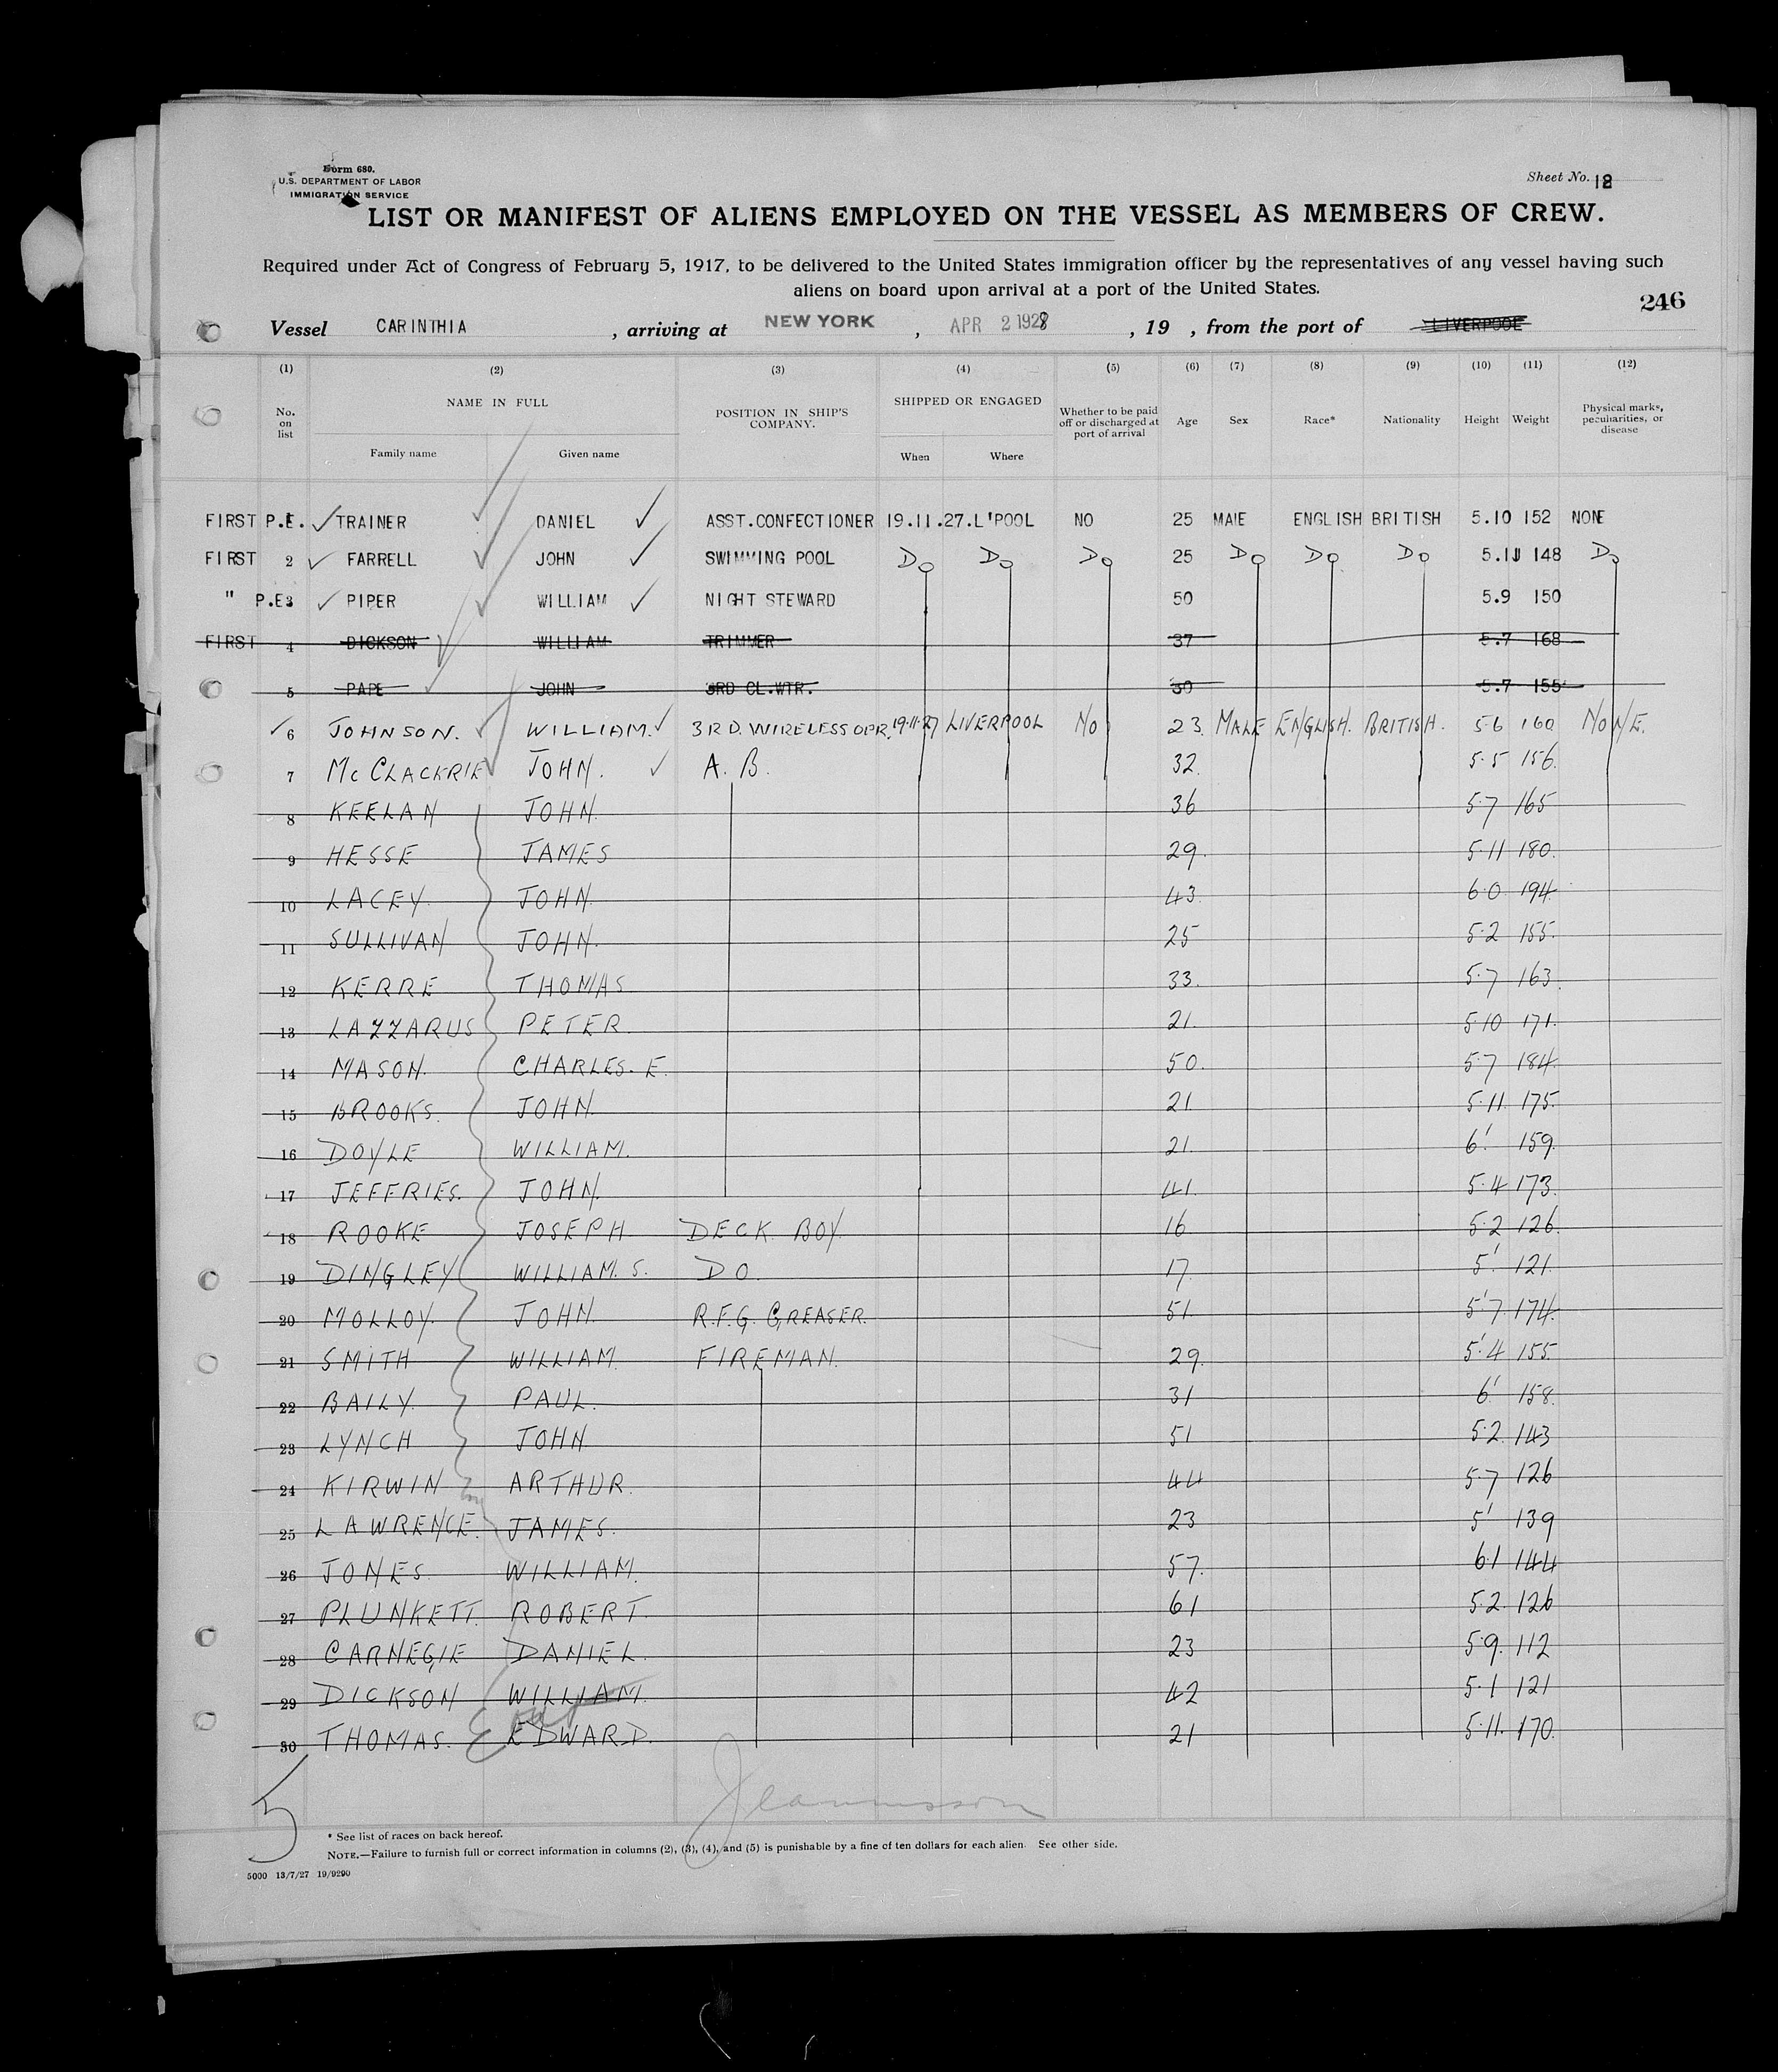 Form 680.
U.S. DEPARTMENT OF LABOR
IMMIGRATION SERVICE
Sheet No. 12
LIST OR MANIFEST OF ALIENS EMPLOYED ON THE VESSEL AS MEMBERS OF CREW.
Required under Act of Congress of February 5, 1917, to be delivered to the United States immigration officer by the representatives of any vessel having such
aliens on board upon arrival at a port of the United States.
246
Vessel CARINTHIA , arriving at NEW YORK , APR 2 1928 , 19 , from the port of LIVERPOOL
(1) (2) (3) (4) (5) (6) (7) (8) (9) (10) (11) (12)
No. on list NAME IN FULL Family name Given name POSITION IN SHIP'S COMPANY. SHIPPED OR ENGAGED When Where Whether to be paid off or discharged at port of arrival Age Sex Race* Nationality Height Weight Physical marks, peculiarities, or disease
FIRST P.E. TRAINER DANIEL ASST.CONFECTIONER 19.11.27. L'POOL NO 25 MALE ENGLISH BRITISH 5.10 152 NONE
FIRST 2 FARRELL JOHN SWIMMING POOL Do Do Do 25 Do Do Do 5.11 148 Do
" P.E. 3 PIPER WILLIAM NIGHT STEWARD 50 5.9 150
FIRST 4 DICKSON WILLIAM TRIMMER 37 5.7 168
5 PAPE JOHN 3RD CL.WTR. 30 5.7 155
6 JOHNSON. WILLIAM. 3RD. WIRELESS OPR. 19.11.27 LIVERPOOL No 23 MALE ENGLISH. BRITISH. 5.6 160 NONE.
7 McCLACKRIE JOHN. A. B. 32. 5.5 156.
8 KEELAN JOHN. 36 5.7 165
9 HESSE JAMES 29. 5.11 180.
10 LACEY. JOHN. 43. 6.0 194.
11 SULLIVAN JOHN. 25 5.2 155.
12 KERRE THOMAS. 33. 5.7 163.
13 LAZZARUS PETER. 21. 5.10 171.
14 MASON. CHARLES. E. 50. 5.7 184.
15 BROOKS. JOHN. 21 5.11. 175.
16 DOYLE WILLIAM. 21. 6' 159.
17 JEFFRIES. JOHN. 41. 5.4 173.
18 ROOKE JOSEPH DECK BOY. 16 5.2 126.
19 DINGLEY WILLIAM. S. DO. 17 5' 121.
20 MOLLOY. JOHN. R.F.G. GREASER. 51 5'7. 174.
21 SMITH WILLIAM. FIREMAN. 29. 5'4 155.
22 BAILY. PAUL. 31 6' 158.
23 LYNCH JOHN. 51 5.2. 143
24 KIRWIN ARTHUR. 44 5.7 126
25 LAWRENCE. JAMES. 23 5' 139
26 JONES. WILLIAM. 57. 6.1 144
27 PLUNKETT. ROBERT. 61 5.2. 126
28 CARNEGIE DANIEL. 23 5.9. 112
29 DICKSON WILLIAM. 42 5.1 121
30 THOMAS. EDWARD. 21 5.11. 170.
5
* See list of races on back hereof.
NOTE.—Failure to furnish full or correct information in columns (2), (3), (4), and (5) is punishable by a fine of ten dollars for each alien. See other side.
5000 13/7/27 19/9290